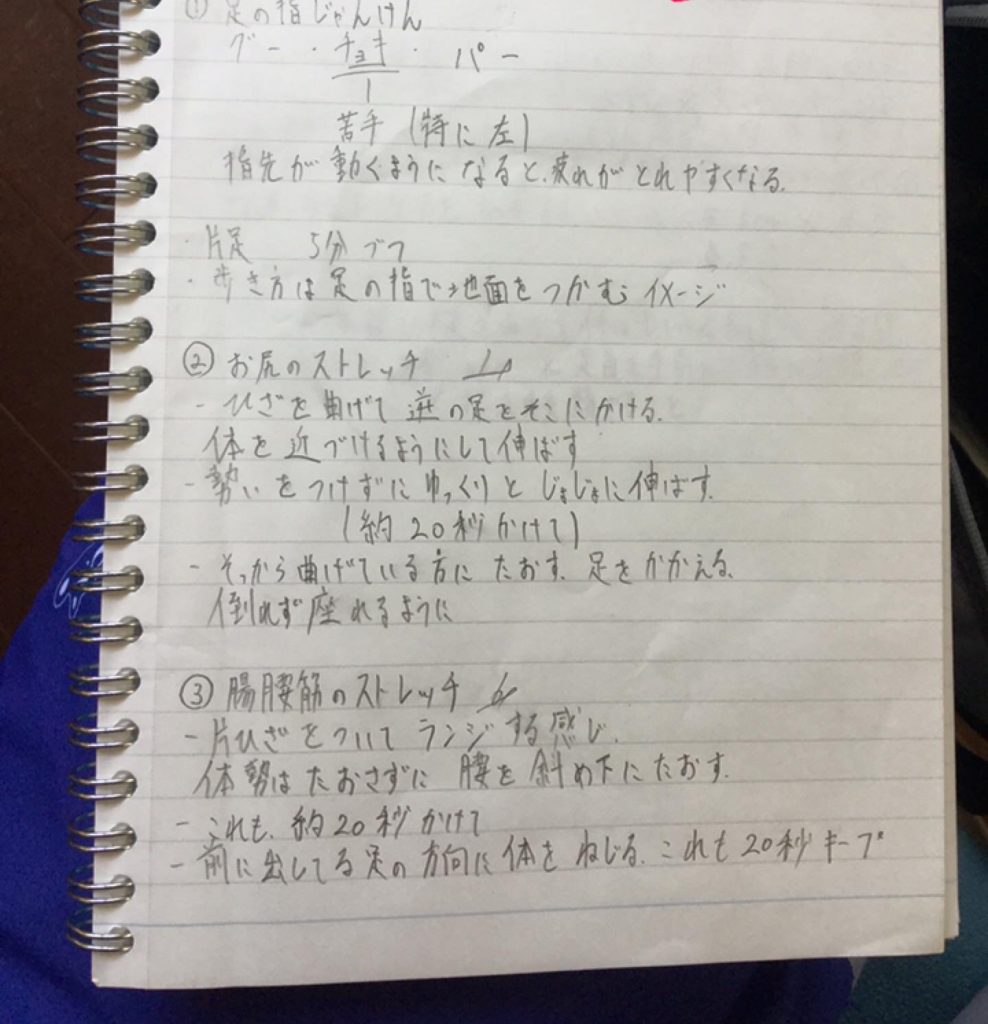 ① 足の指じゃんけん
グー ・ チョキ ・ パー
苦手 (特に左)
指先が動くようになると、疲れがとれやすくなる。
・片足 5分づつ
・歩き方は足の指で地面をつかむイメージ
② お尻のストレッチ
- ひざを曲げて逆の足をそこにかける。
体を近づけるようにして伸ばす
- 勢いをつけずにゆっくりとじょじょに伸ばす。
(約20秒かけて)
- そっから曲げている方にたおす。足をかかえる。
倒れず座れるように
③ 腸腰筋のストレッチ
- 片ひざをついてランジする感じ。
体勢はたおさずに腰を斜め下にたおす。
- これも、約20秒かけて
- 前に出してる足の方向に体をねじる。これも20秒キープ